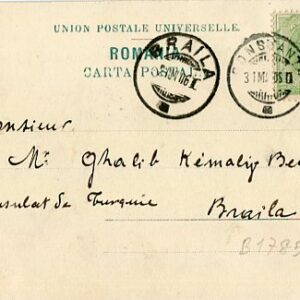 UNION POSTALE UNIVERSELLE.
ROMANIA
CARTA POSTALA
BRAILA
CONSTANTA
31 MAI 06
Monsieur
Mr. Ghalib Kémaliy Bey
Consulat de Turquie
Braila
B1785